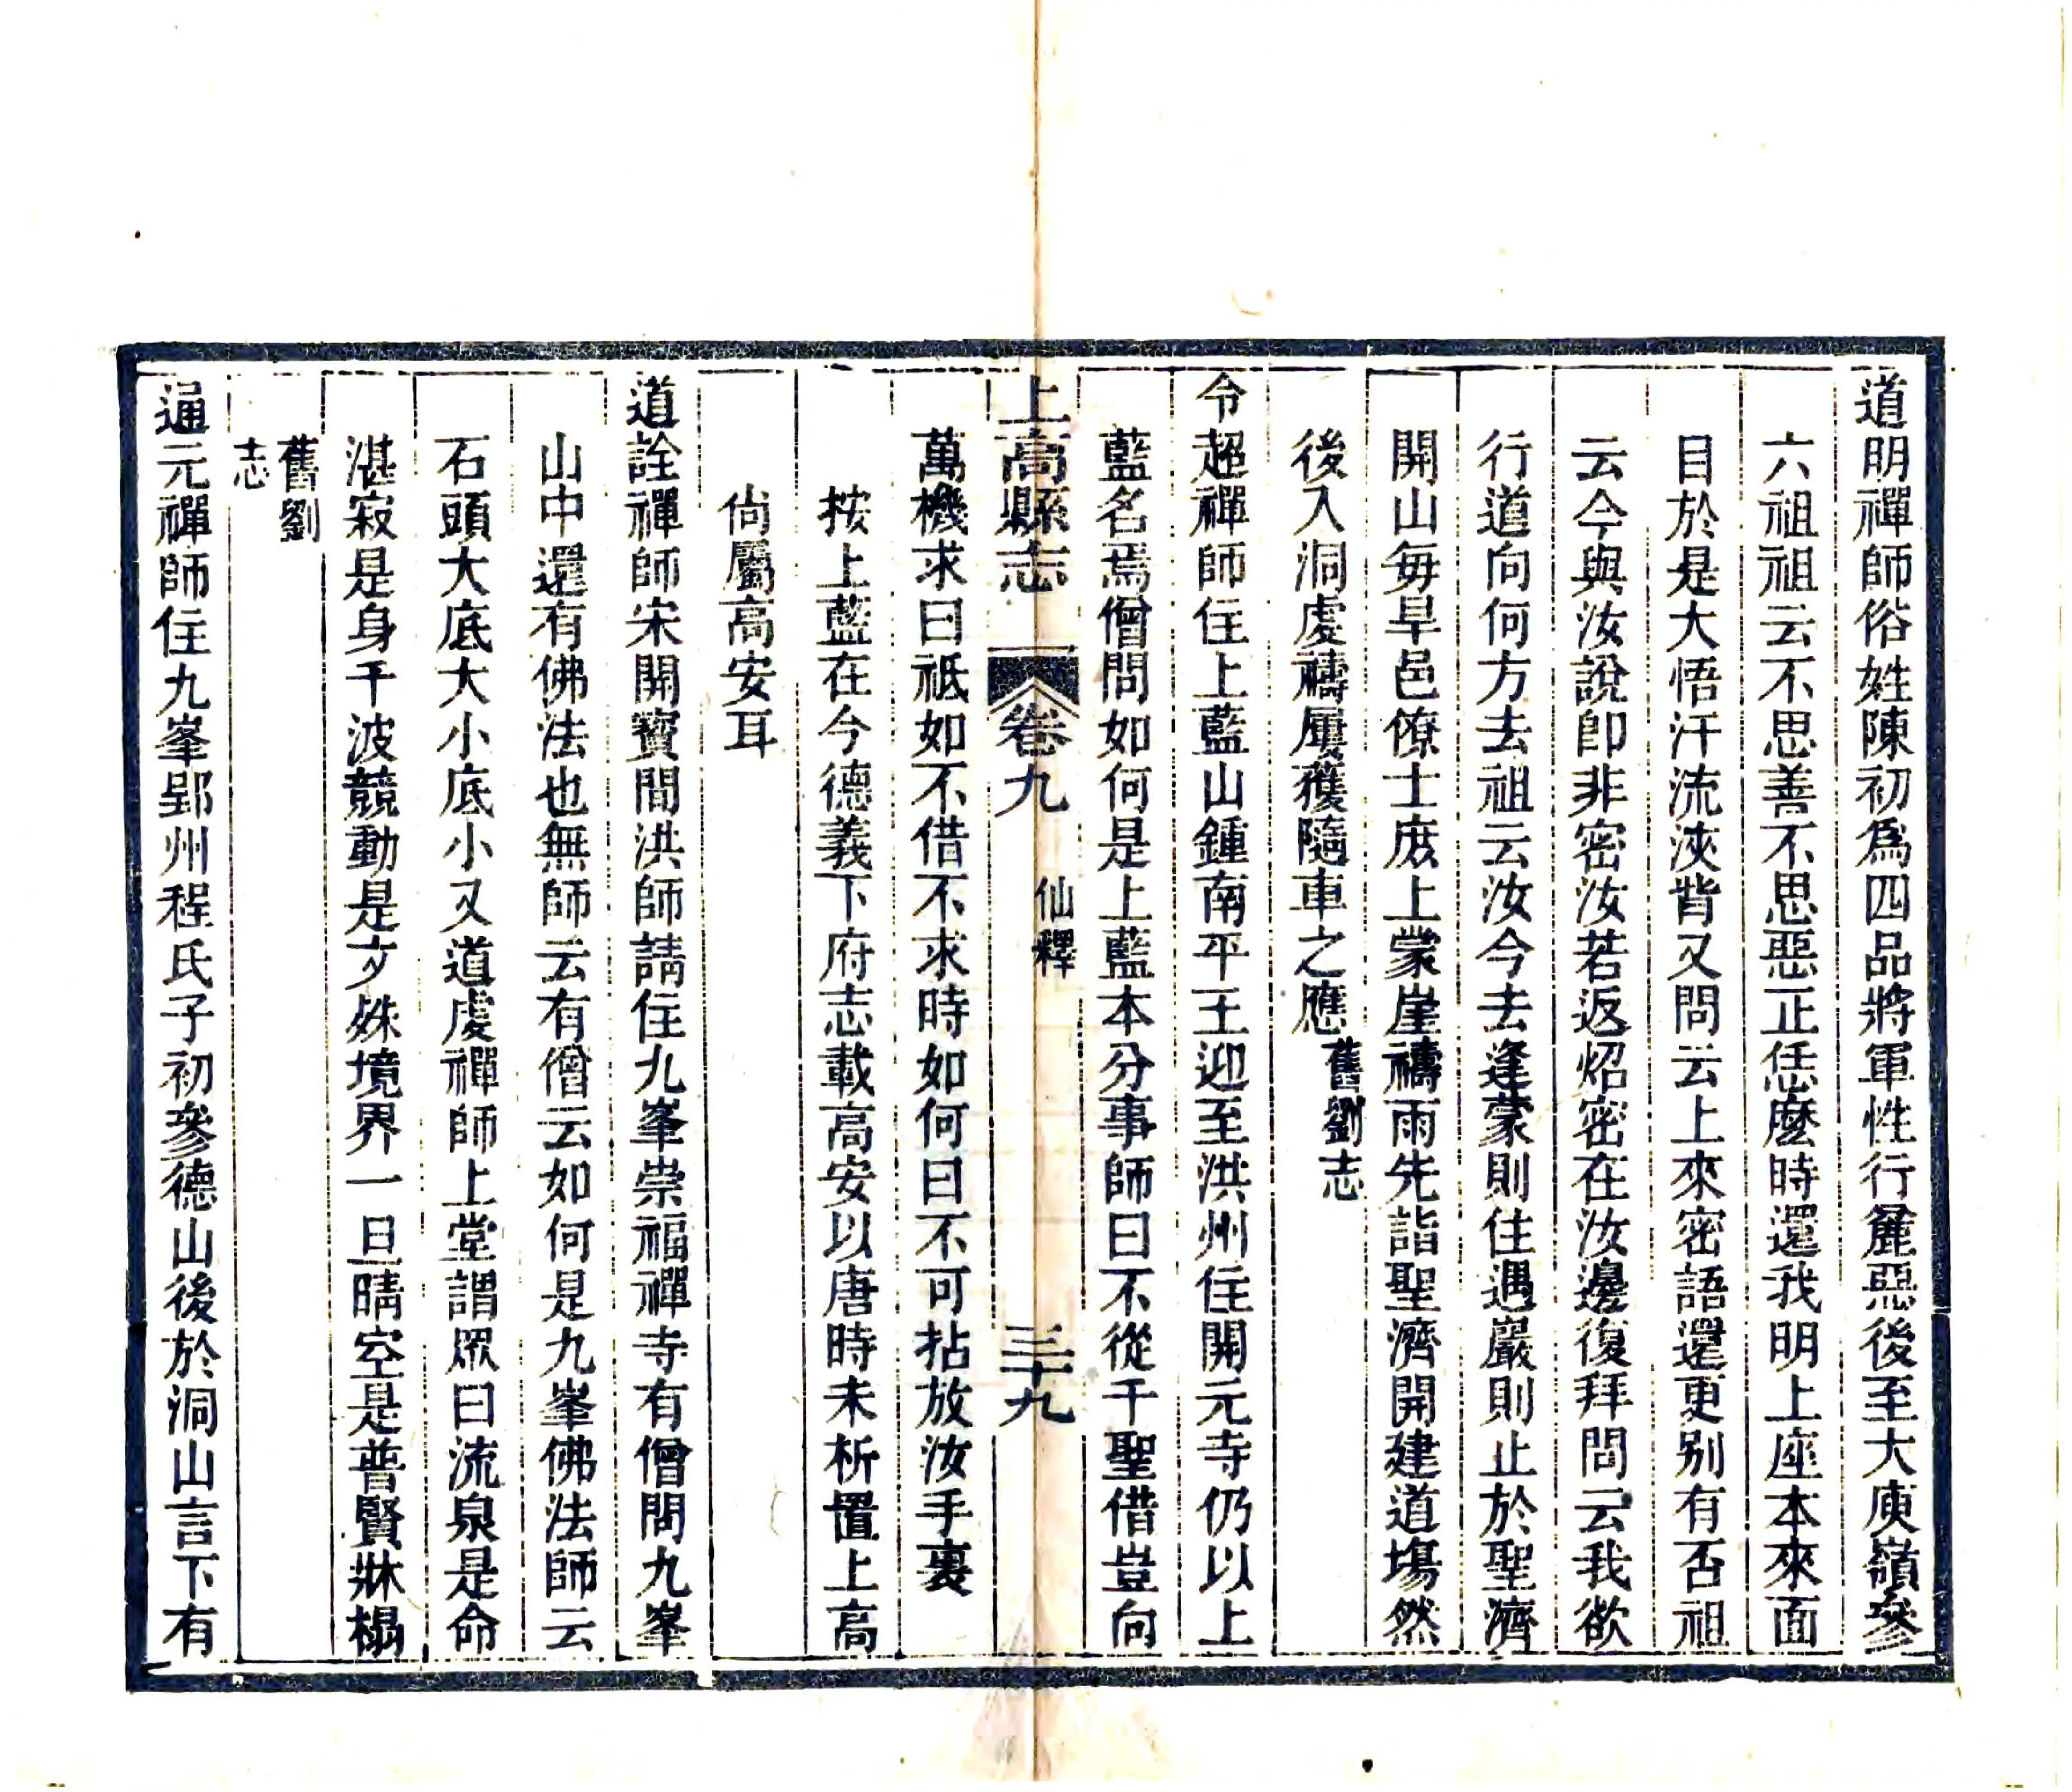 道明禪師俗姓陳初爲四品將軍性行麄惡後至大庾嶺參
六祖祖云不思善不思惡正恁麽時還我明上座本來面
目於是大悟汗流浹背又問云上來密語還更别有否祖
云今與汝說卽非密汝若返炤密在汝邊復拜問云我欲
行道向何方去祖云汝今去逢蒙則住遇巖則止於聖濟
開山毎旱邑僚士庶上蒙崖禱雨先詣聖濟開建道塲然
後入洞處禱屢獲隨車之應舊劉志
令超禪師住上藍山鍾南平王迎至洪州住開元寺仍以上
藍名焉僧問如何是上藍本分事師曰不從千聖借豈向
萬機求曰祇如不借不求時如何曰不可拈放汝手裏
按上藍在今德義下府志載高安以唐時未析置上高
尙屬高安耳
上高縣志 卷九 仙釋 三十九
道詮禪師宋開寶間洪師請住九峯崇福禪寺有僧問九峯
山中還有佛法也無師云有僧云如何是九峯佛法師云
石頭大底大小底小又道虔禪師上堂謂眾曰流泉是命
湛寂是身千波競動是文殊境界一旦晴空是普賢牀榻
舊劉
志
通元禪師住九峯郢州程氏子初參德山後於洞山言下有